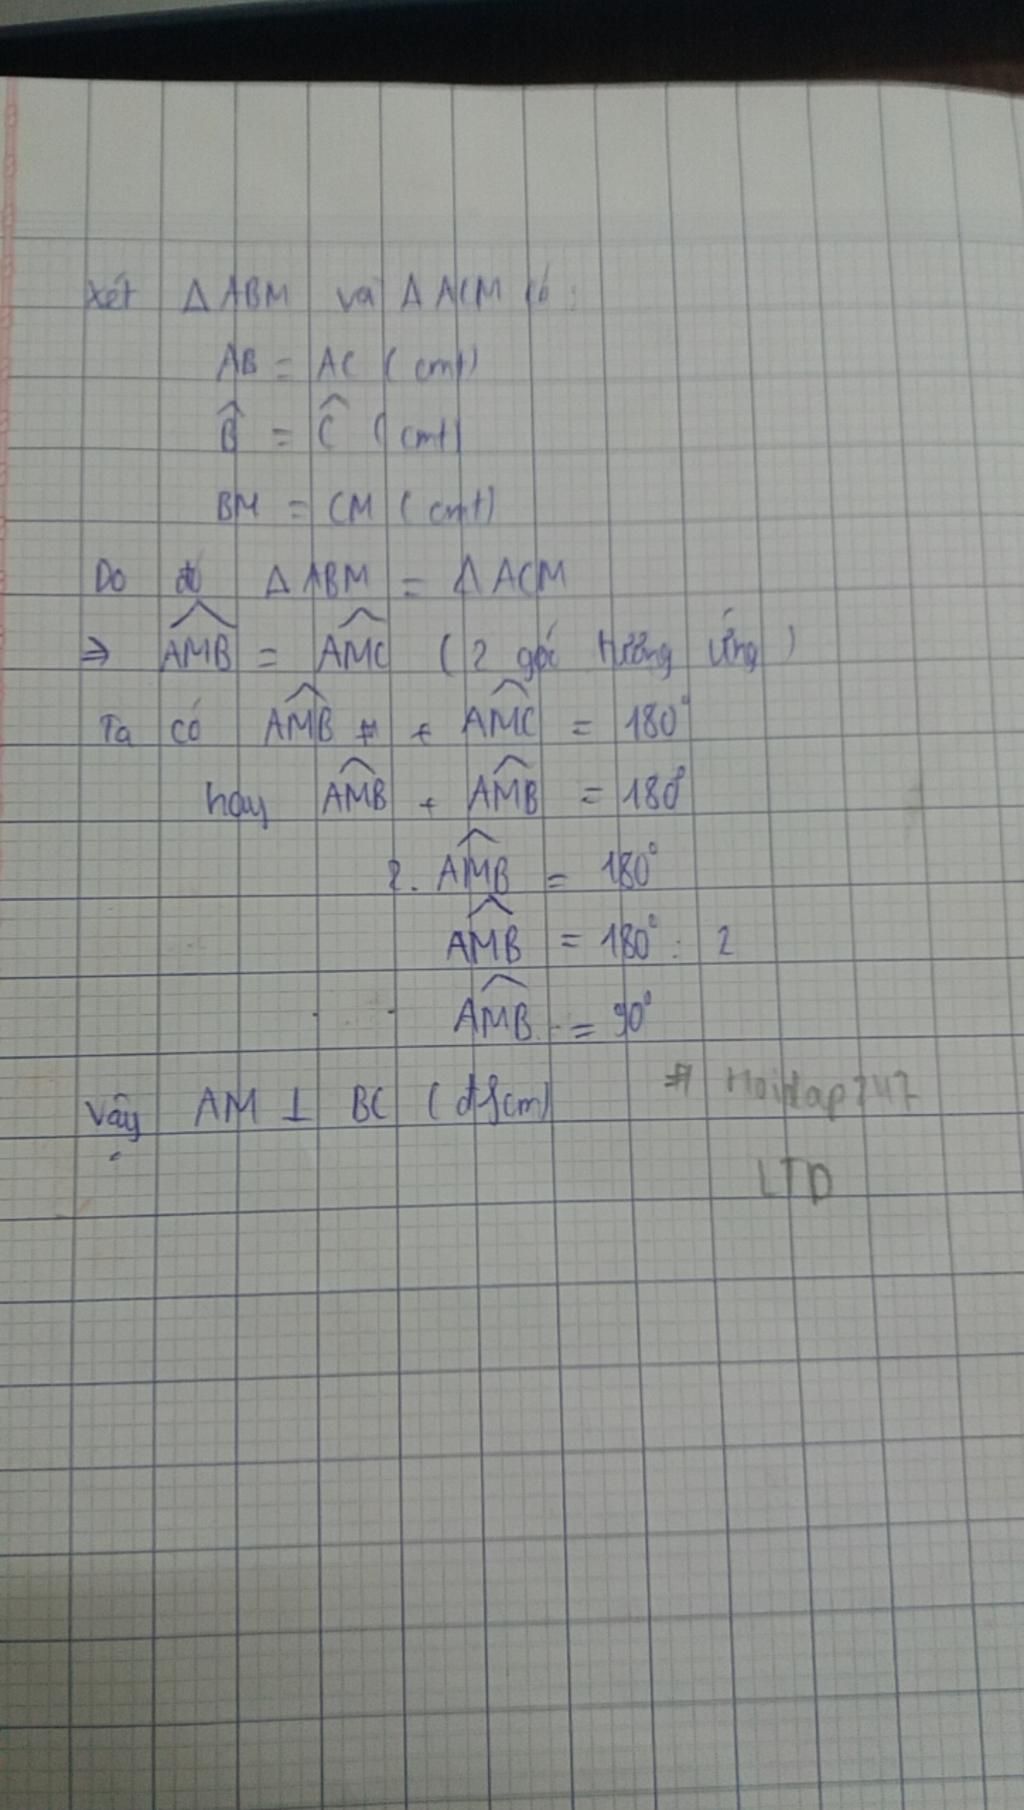 Xét Δ ABM và Δ ACM có :
AB = AC ( cmt)
B̂ = Ĉ (cmt)
BM = CM ( cmt)
Do đó Δ ABM = Δ ACM
⇒ \widehat{AMB} = \widehat{AMC} ( 2 góc tương ứng )
Ta có \widehat{AMB} + \widehat{AMC} = 180°
hay \widehat{AMB} + \widehat{AMB} = 180°
2. \widehat{AMB} = 180°
\widehat{AMB} = 180° : 2
\widehat{AMB} = 90°
Vậy AM ⊥ BC (đfcm)
# Hoidap247
LTD